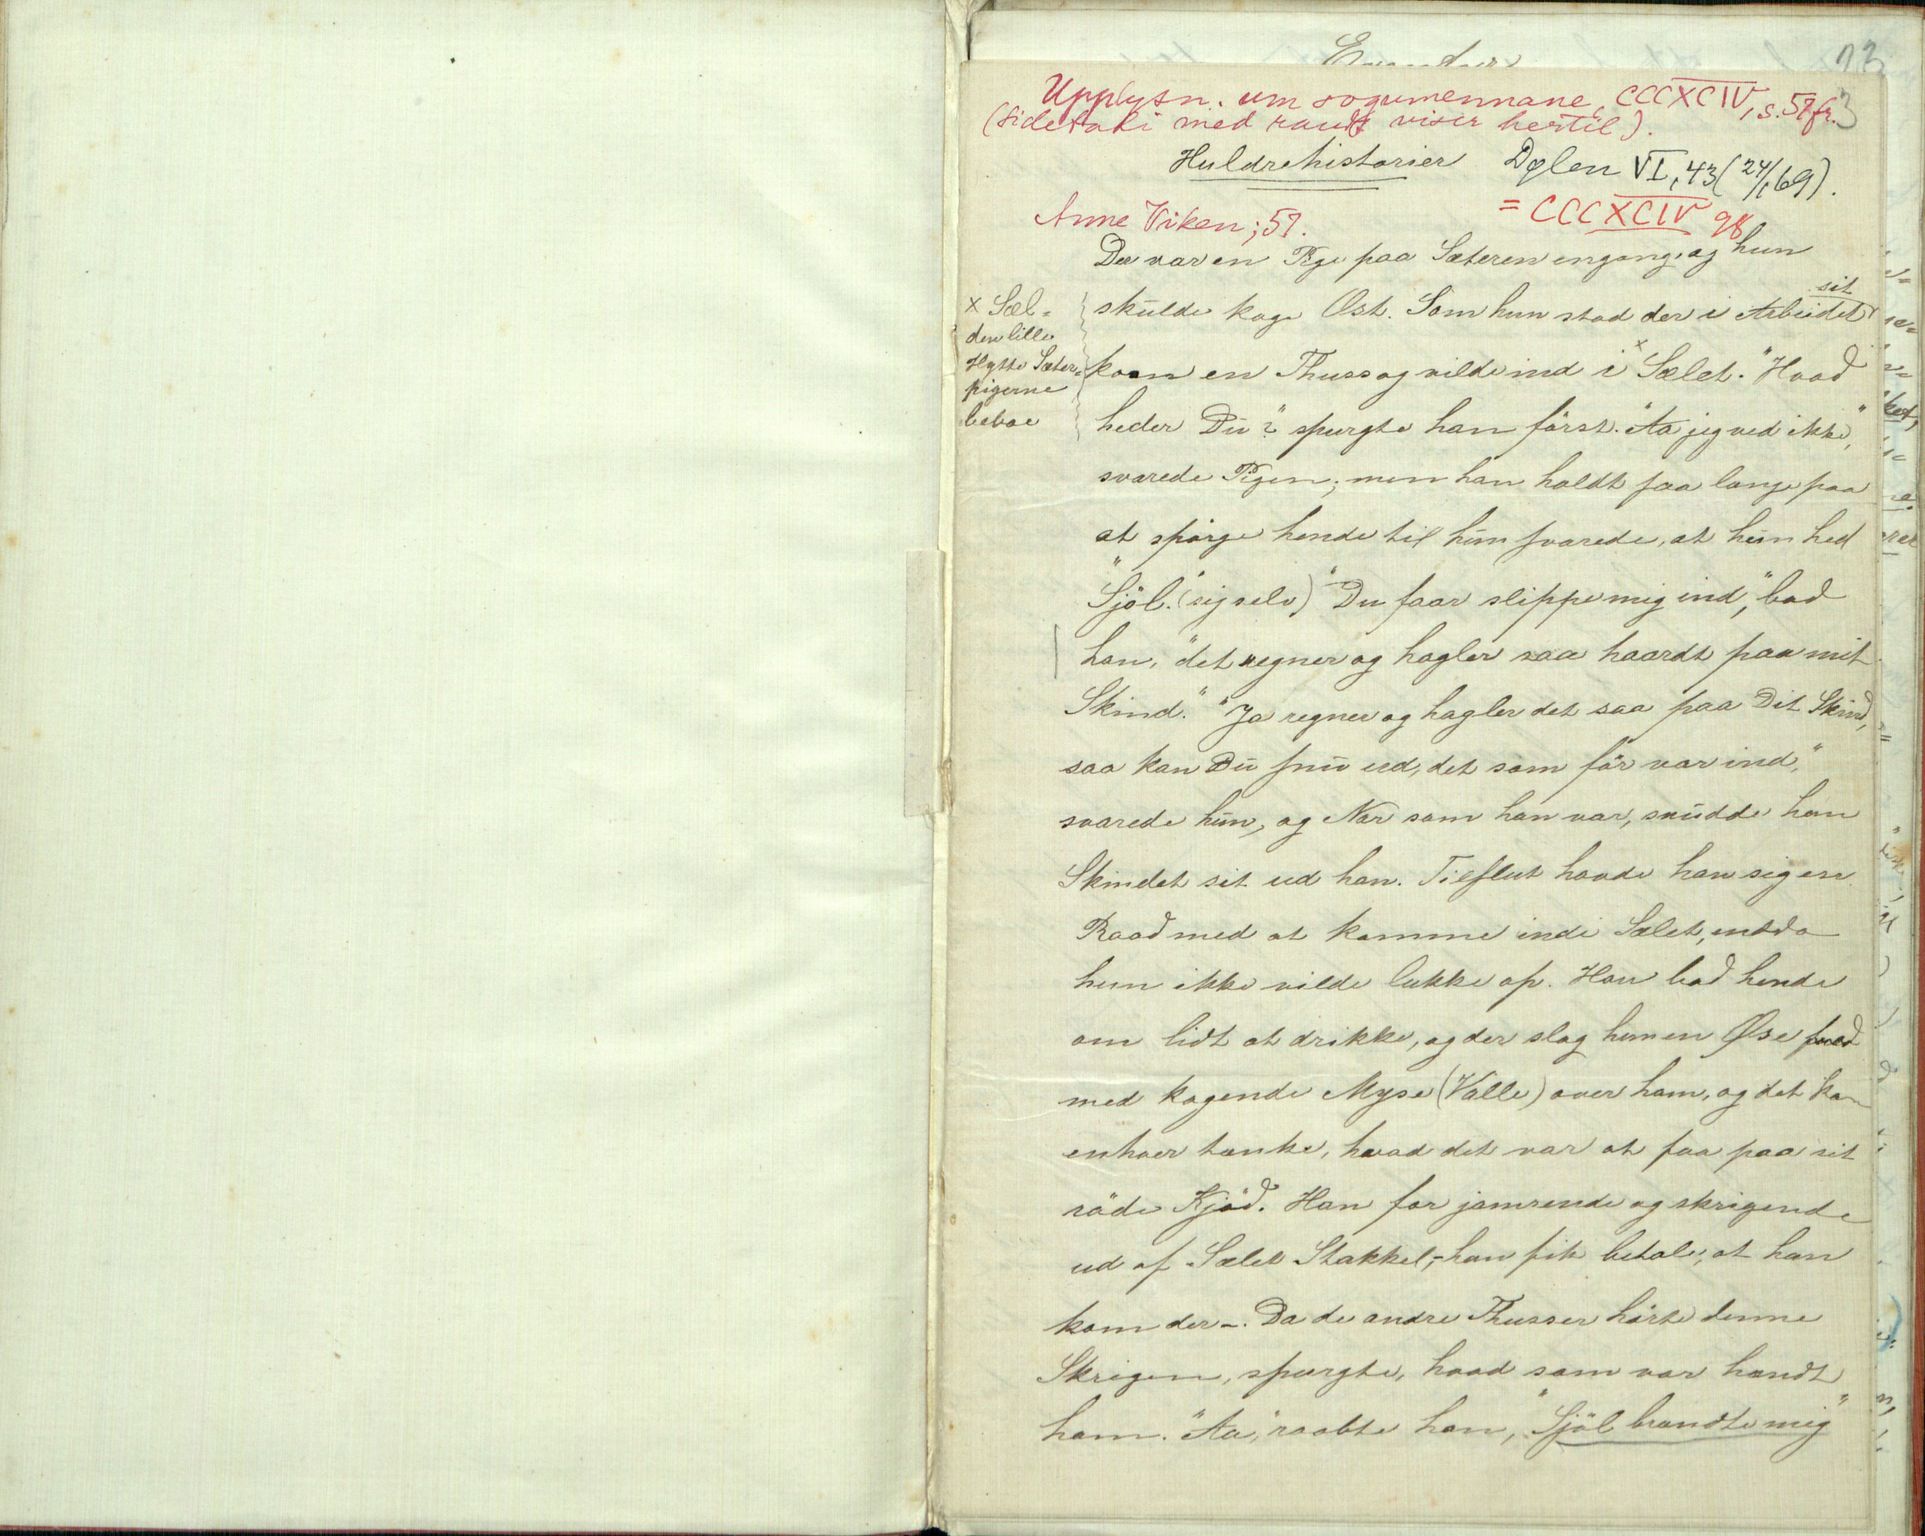 23
Upplysn. um sogumennane, CCCXCIV, s. 57 fr.
(sidetali med raudt viser hertil).
Huldrehistorier Dølen VI, 43 (24/1 69).
= CCCXCIV 98
Anne Viken; 57.
Der var en Pige paa Sæteren engang, og hun
skulde koge Ost. Som hun stod der i Arbeidet sit
kom en Thuss og vilde ind i x Sælet. "Hvad
heder Du?" spurgte han først. "Aa jeg ved ikke,"
svarede Pigen; men han holdt saa længe paa
at spørge hende til hun svarede, at hun hed
"Sjöl." (sig selv) "Du faar slippe mig ind," bad
han, "det regner og hagler saa haardt paa mit
Skind." "Ja regner og hagler det saa paa Dit Skind,
saa kan Du snu ud, det som før var ind,"
svarede hun, og Nar som han var, snudde han
Skindet sit ud han. Tilslut havde han sig en
Raad med at komme ind i Sælet, endda
hun ikke vilde lukke op. Han bad hende
om lidt at drikke, og der slog hun en Øse
med kogende Myse (Valle) over ham, og det kan
enhver tænke, hvad det var at faa paa sit
røde Kjød. Han for jamrende og skrigende
ud af Sælet Stakkel, - han fik betale, at han
kom der -. Da de andre Thusser hørte denne
Skrigen, spurgte, hvad som var hændt
ham. "Aa," raabte han, "Sjöl brændte mig"
x Sæl =
den lille
Hytte Sæter-
pigerne
beboe